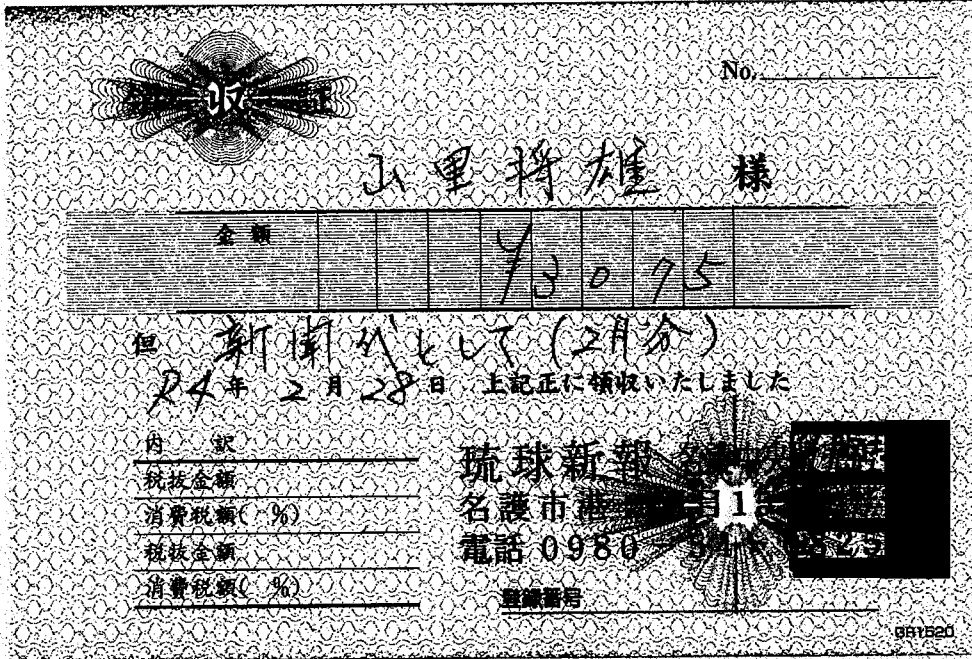 領収証
No.
山里将雄 様
金額 ¥3075
但 新聞代として(2月分)
R4年 2月 28日 上記正に領収いたしました
内 訳
税抜金額
消費税額( %)
税抜金額
消費税額( %)
琉球新報
名護市港
電話 0980
登録番号
GR1520